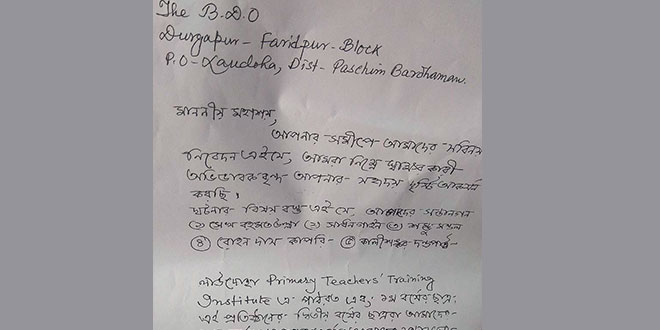 The B.D.O
Durgapur - Faridpur - Block
P.O - Laudoha, Dist - Paschim Bardhaman.
মাননীয় মহাশয়,
আপনার সমীপে আমাদের সবিনয়
নিবেদন এই যে, আমরা নিম্নে স্বাক্ষর কারী
অভিভাবকবৃন্দ আপনার - সহৃদয় দৃষ্টি আকর্ষণ
করছি,
ঘটনার - বিষয় বস্তু এই যে আমাদের সন্তানগণ
(১) সেখ (২) (৩) শম্ভু মন্ডল
(৪) রোহন দাস (৫) কালীশঙ্কর
লাউদোহা Primary Teachers' Training
Institute এ পাঠরত এবং ১ম বর্ষের ছাত্র।
এই প্রতিষ্ঠানের - দ্বিতীয় বর্ষের ছাত্ররা আমাদের -